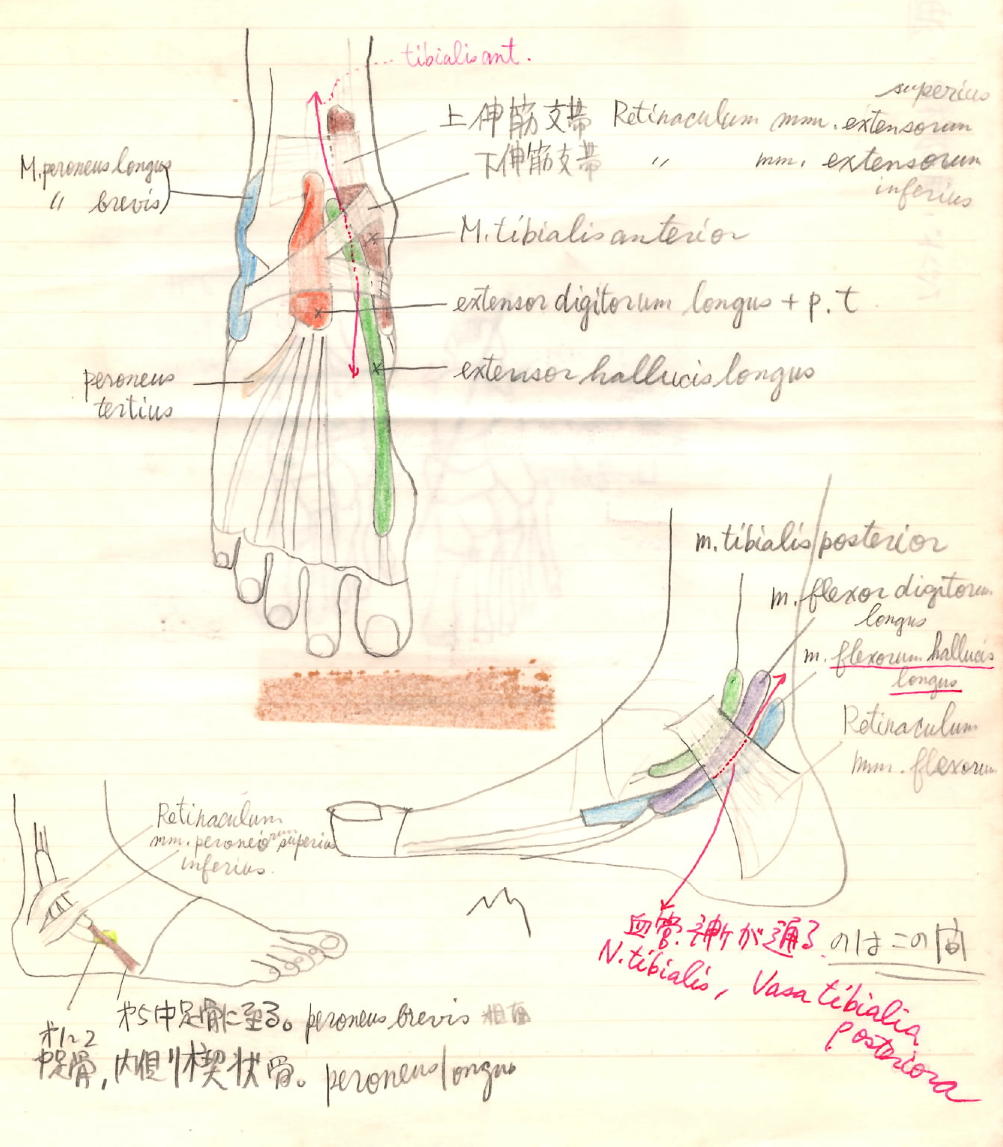 tibialis ant.
superius
上伸筋支帯 Retinaculum mm. extensorum
下伸筋支帯 〃 mm. extensorum
inferius
M. peroneus longus
〃 brevis
M. tibialis anterior
extensor digitorum longus + p. t
extensor hallucis longus
peroneus
tertius
m. tibialis posterior
m. flexor digitorum
longus
m. flexorum hallucis
longus
Retinaculum
mm. flexorum
Retinaculum
mm. peroneorum superius
inferius.
血管.神ケが通る のはこの間
N. tibialis, Vasa tibialia
posteriora
才5中足骨に至る。peroneus brevis
才1~2
中足骨, 内側楔状骨。peroneus longus